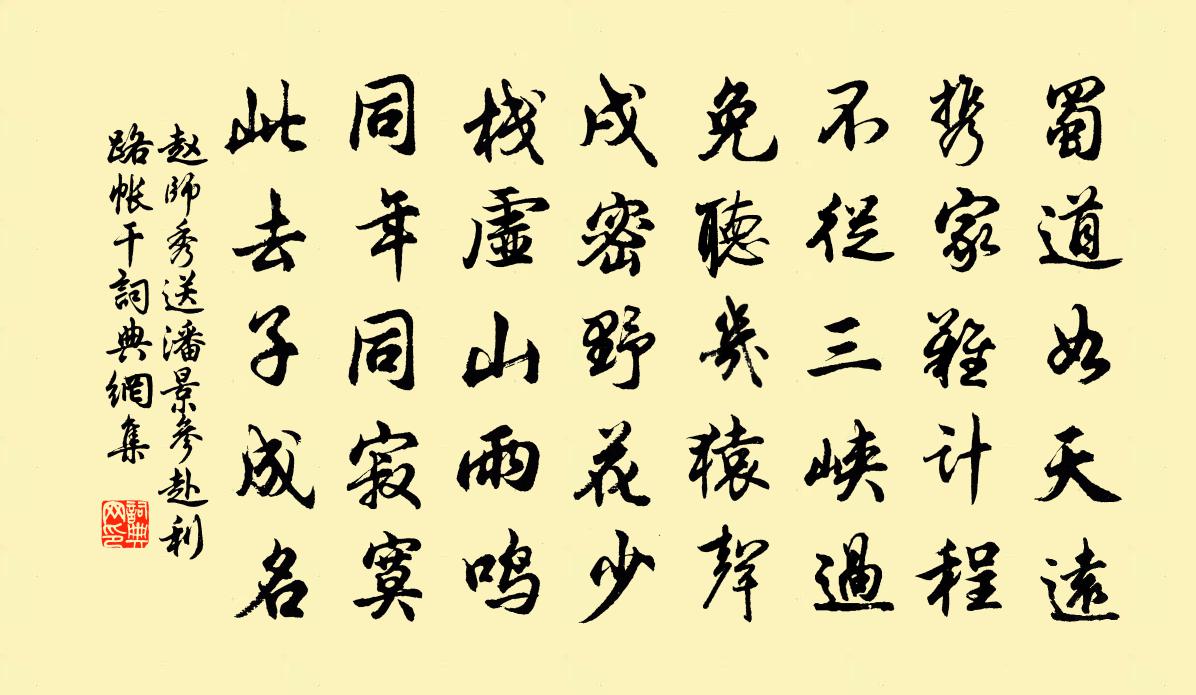 蜀道如天遠
携家難計程
不從三峽過
免聽幾猿聲
戍密野花少
棧虛山雨鳴
同年同寂寞
此去子成名
赵師秀送潘景參赴利
路帐干詞典網集
詞典网印